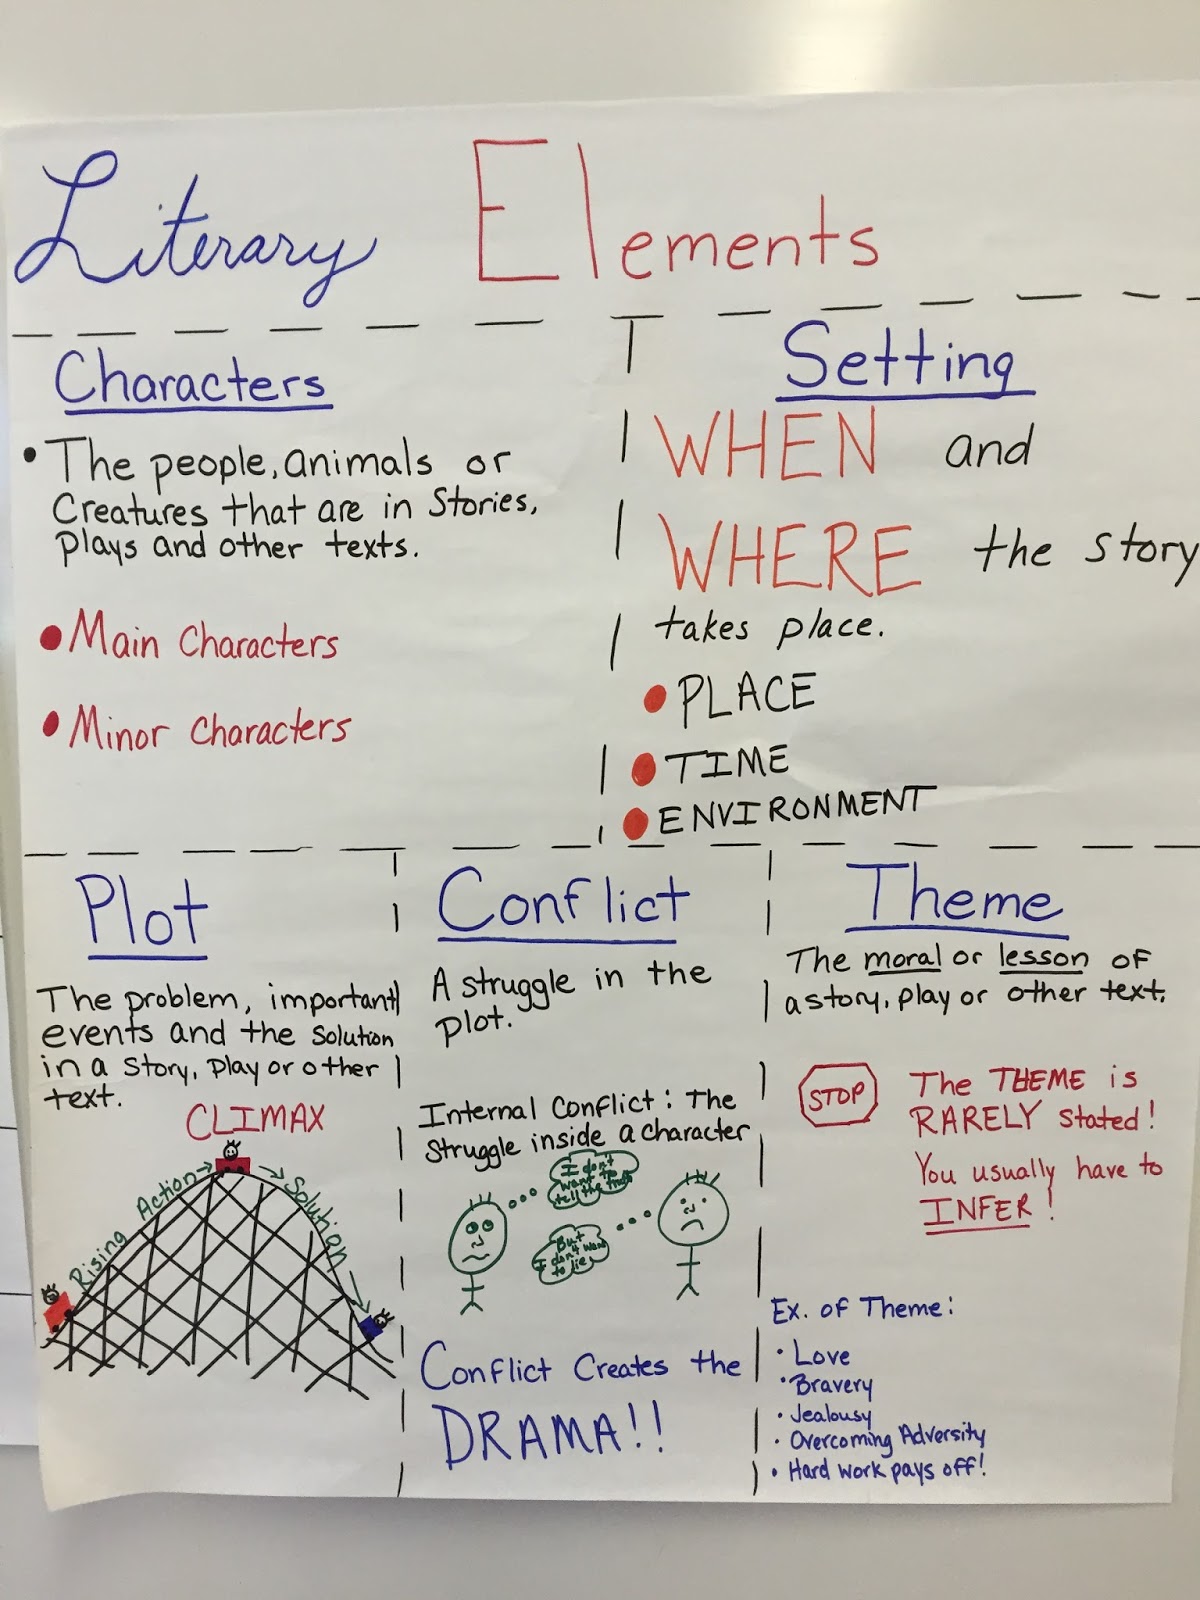 Literary Elements
Characters
• The people, animals or
Creatures that are in Stories,
plays and other texts.
• Main Characters
• Minor Characters
Setting
WHEN and
WHERE the story
takes place.
• PLACE
• TIME
• ENVIRONMENT
Plot
The problem, important
events and the solution
in a story, play or other
text.
CLIMAX
Rising Action
Solution
Conflict
A struggle in the
plot.
Internal Conflict: The
struggle inside a character
I don't
want to
tell the truth
But
I don't want
to lie
Conflict Creates the
DRAMA!!
Theme
The moral or lesson of
a story, play or other text.
STOP
The THEME is
RARELY stated!
You usually have to
INFER!
Ex. of Theme:
• Love
• Bravery
• Jealousy
• Overcoming Adversity
• Hard work pays off!